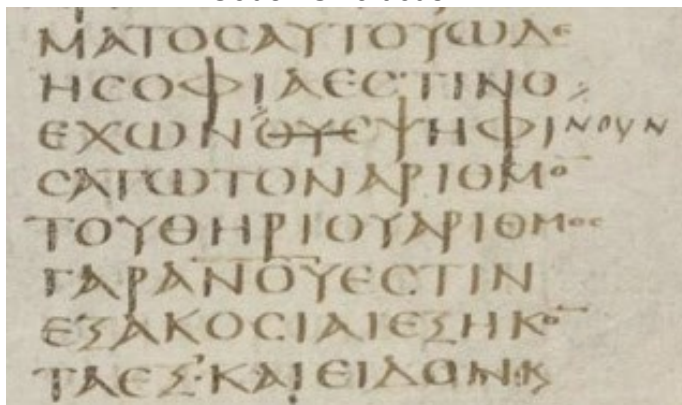 ΜΑΤΟϹΑΥΤΟΥΩΔΕ
ΗϹΟΦΙΑΕϹΤΙΝΟ
ΕΧΩΝΟΥϹΨΗΦΙ ΝΟΥΝ
ϹΑΤΩΤΟΝΑΡΙΘΜΟ̅
ΤΟΥΘΗΡΙΟΥΑΡΙΘΜΟϹ
ΓΑΡΑ̅Ν̅Ο̅Υ̅ΕϹΤΙΝ
ΕΞΑΚΟϹΙΑΙΕΞΗΚΟ̅
ΤΑΕΞ·ΚΑΙΕΙΔΟΝ·Ϗ